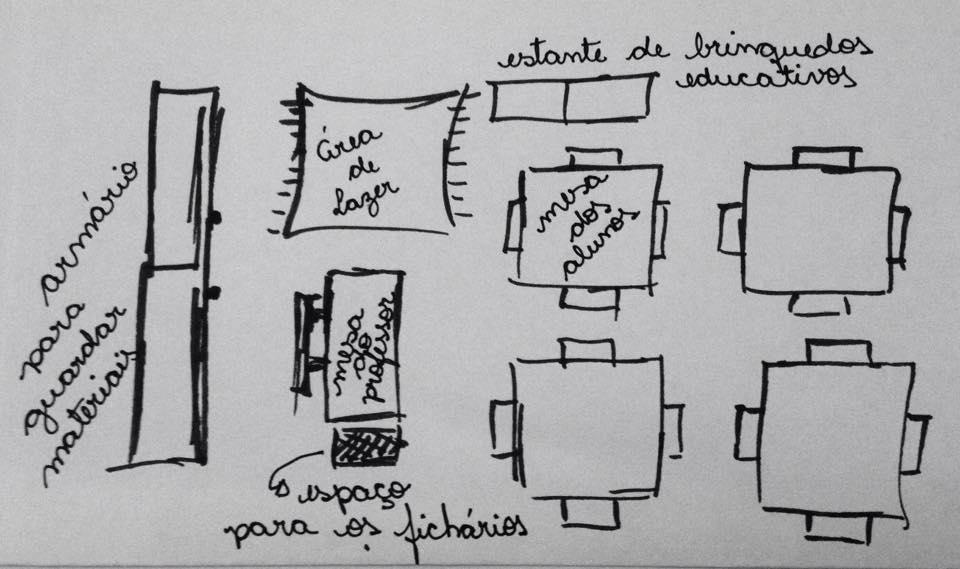 estante de brinquedos
educativos
armário
para
guardar
materiais
área
de
lazer
mesa
dos
alunos
mesa
do
professor
espaço
para os fichários